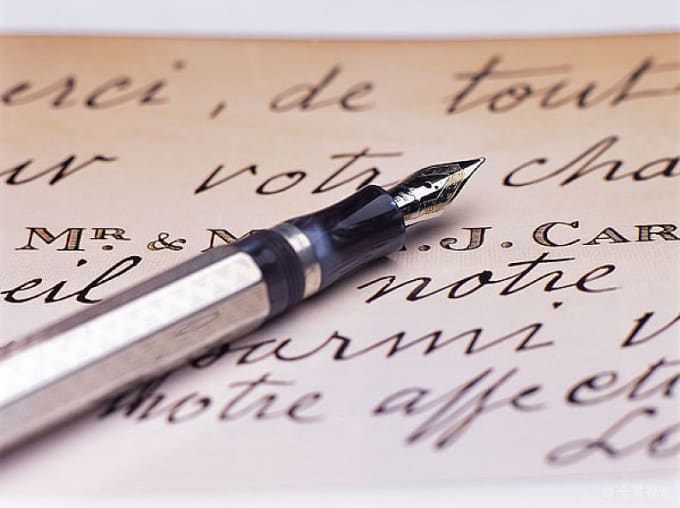 erci, de tout
ur votr cha
MR. & M .J. CAR
eil notre
parmi v
notre affecti
Lo